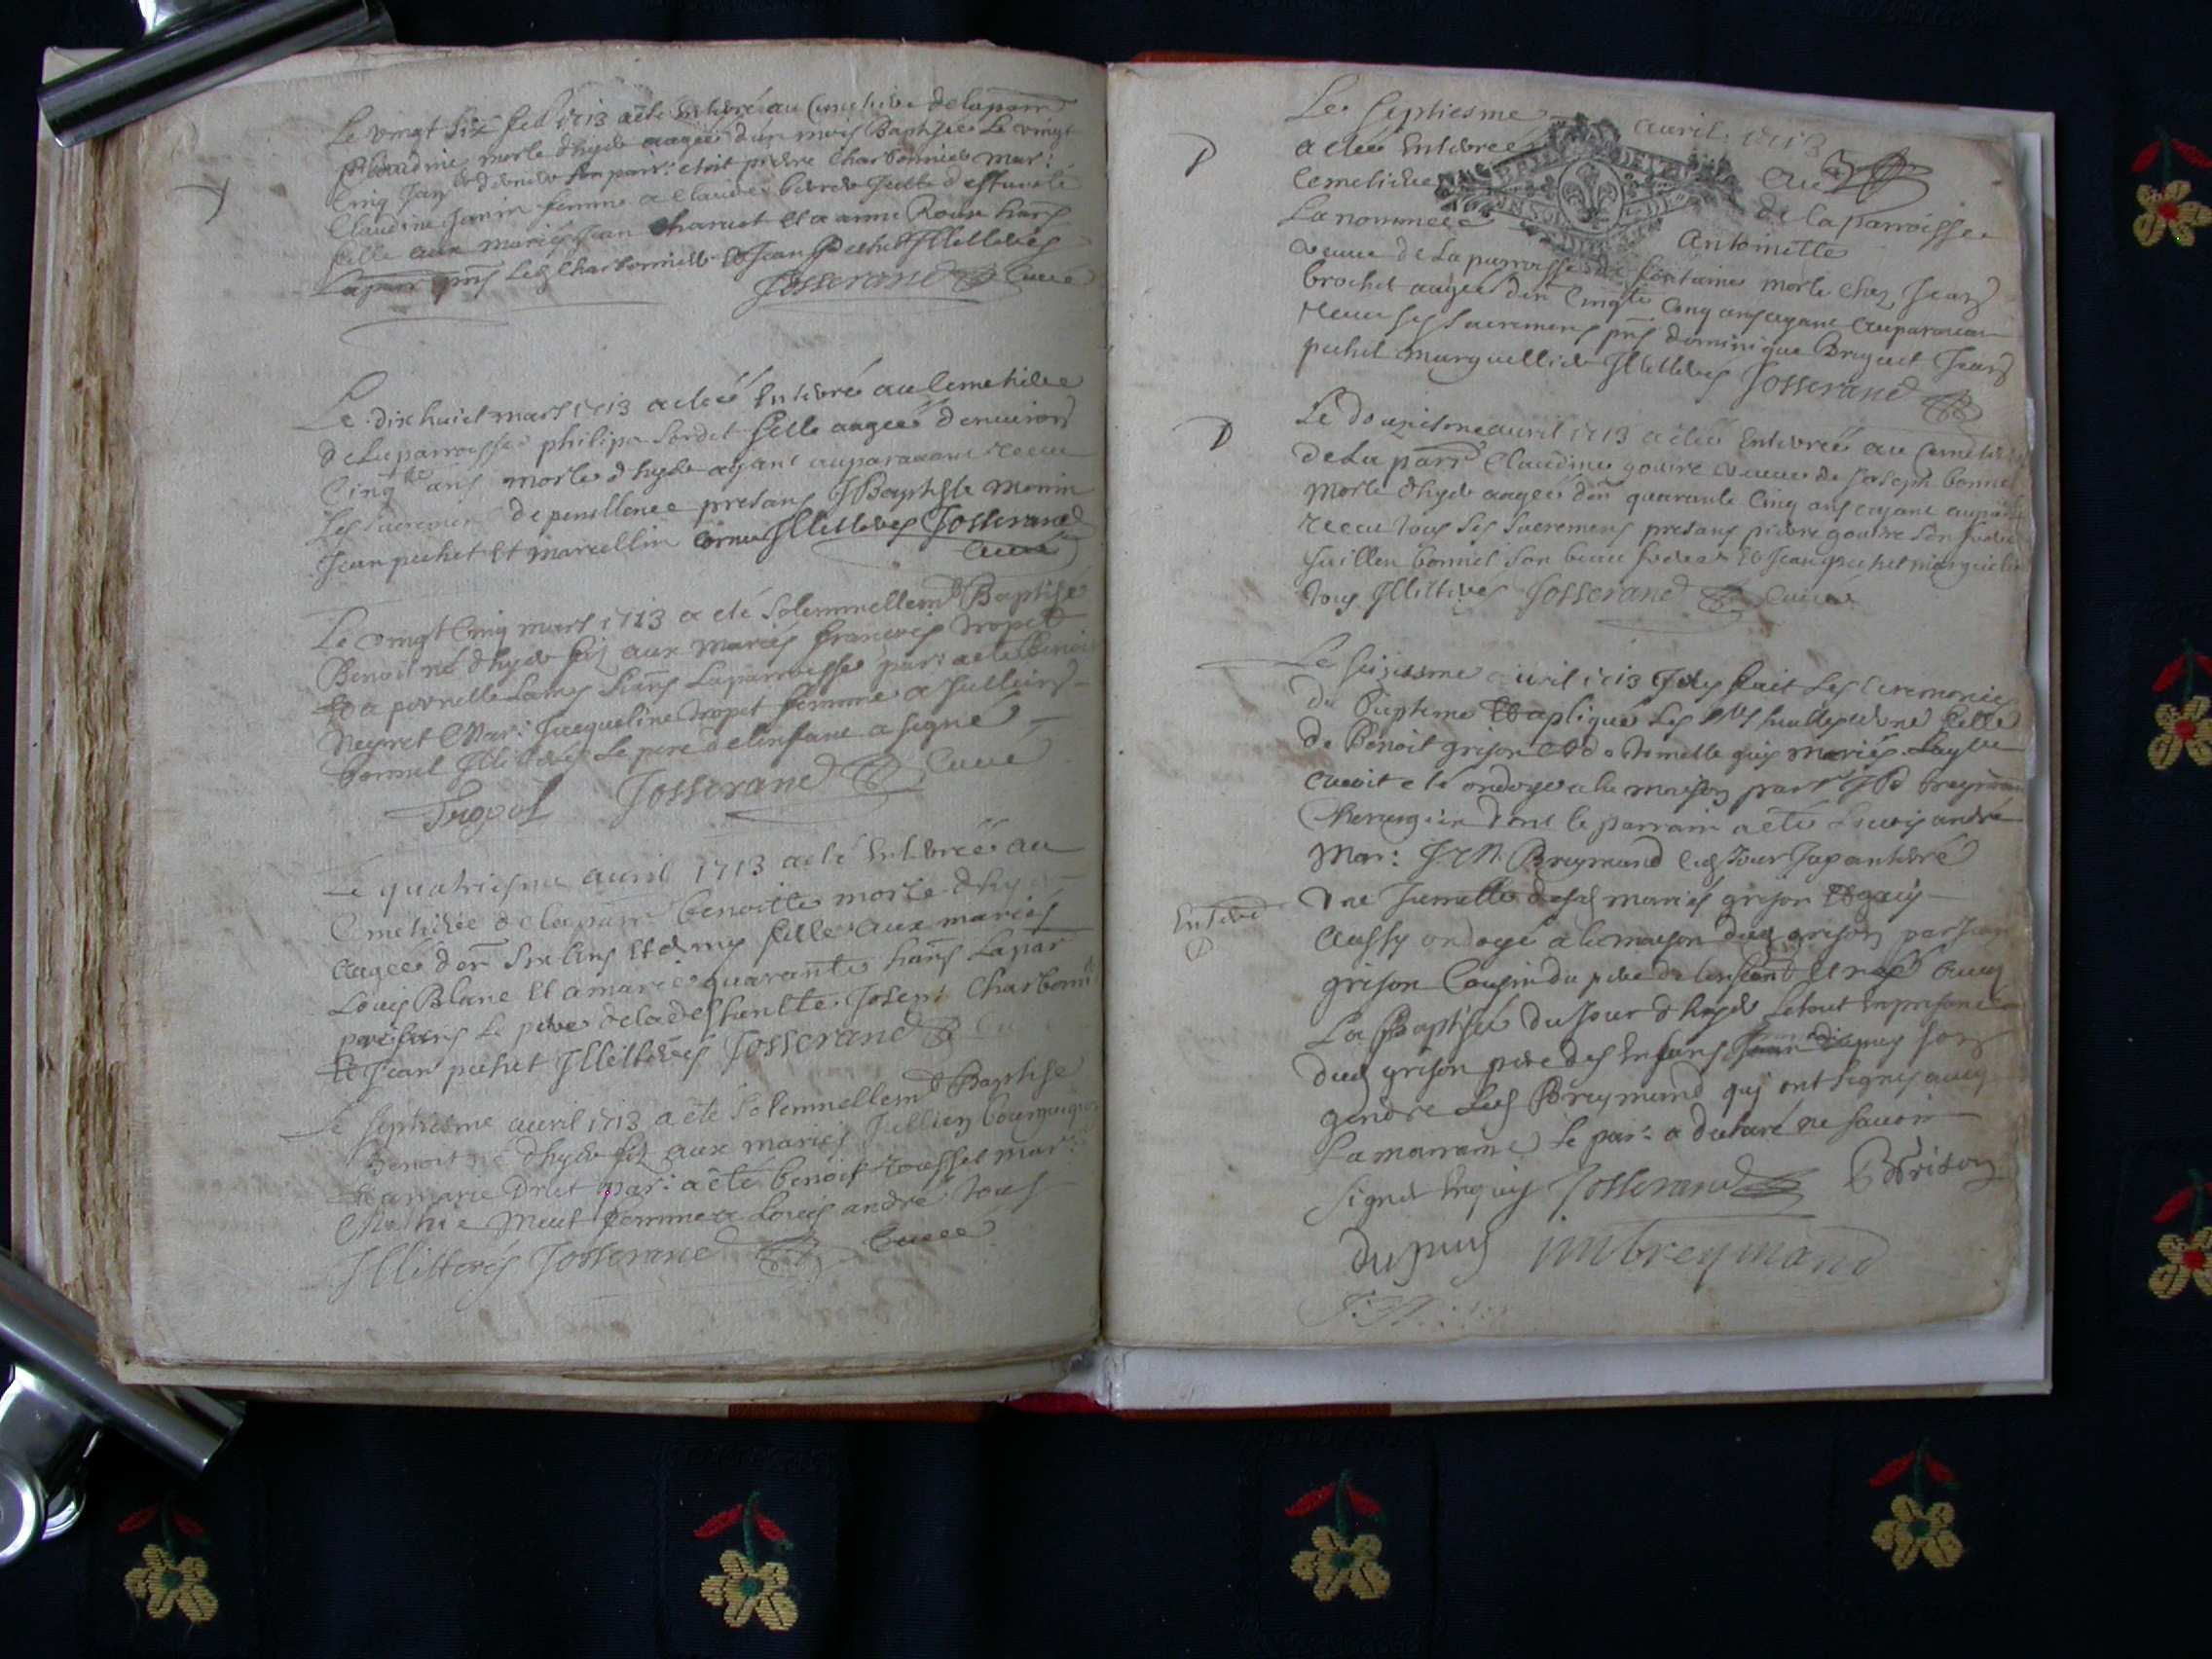 Le vingt six feb 1713 a été Enterré au Cimetiere de la parr
Claudine morte d'hyer aagée d'un mois Baptisée Le vingt
Cinq Janer dernier son parr: etoit pierre Charbonnier mar:
Claudine Janin femme a Claude ditte deffuncte
fille aux mariés Jean Charuet et a anne Roux hans
La parr pns Led Charbonnier et Jean pechet Illetterés
Josserand Curé
Le dix huict mars 1713 a eteé Enterré au Cemetiere
de La parroisse philipa Sordet fille aagée d'enuiron
Cinqte ans morte d'hyer ayant auparauant receu
Les Sacremens de penitence presans J Baptiste monin
Jean pechet Et marcellin Cornu Illetterés Josserand
Curé
Le vingt Cinq mars 1713 a eté Solemnellemt Baptisé
Benoit né d'hyer filz aux mariés francois tropet
Et a pernelle Lamy hans La parroisse par: a eté Benoit
neyret Mar: Jacqueline tropet femme a Jullien
bonnet Illiterés Le pere de l'enfant a signé
Tropet Josserand Curé
Le quatriesme auril 1713 a eté Enterrée au
Cemetiere de la parr benoitte morte d'hyer
aagée d'en Six ans Et demy fille aux mariés
Louis Blanc Et a marie quarante hans La par
presans Le pere de la deffuncte Joseph Charbonnier
Et Jean pechet Illetterés Josserand
Le septiesme auril 1713 a eté Solemnellemt Baptisé
Benoit né d'hyer filz aux mariés Jullien bourguignon
Et a marie Dret par: a eté benoit rousset mar:
femme a Louis andré tous
Illitterés Josserand Curé
Le Septiesme auril 1713
a eteé Enterreé au
Cemetiere de la Parroisse
La nommeé Antoinette
veuue de La parroisse de fontaines morte chez Jean
brochet aagée d'en Cinqte Cinq ans ayant auparauant
receu ses Sacremens pns dominique Bruyret Jean
pechet marguellier Illetterés Josserand
Le douziesme auril 1713 a eteé Enterreé au Cemetiere
de La parr Claudine gouire veuue de Joseph bonnet
morte d'hyer aagée d'en quarante Cinq ans ayant auparat
receu tous ses Sacremens presans pierre gouire Son frere
Juillen bonnet Son beau frere et Jean pechet marguelier
tous Illitterés Josserand Curé
Le seiziesme auril 1713 J'ay fait Les Ceremonies
du Bapteme Et apliqué Les Stes huilles a une fille
de Benoit grison Et d'antoinette guys mariés Laquelle
auoit eté ondoyée a la maison par Breymand
Chirurgien dont le parrain a eté Louis andré
Mar: Breymand Led Jour J'ay enterré
Une Jumelle desd mariés grison Et guis
Enterré
Aussy ondoyé a la maison dud grison par Jean
grison Cousin du pere de l'enfant Et née auec
La Baptisée du Jour d'hyer Le tout En presence
dud grison pere des Enfans dupuy son
gendre Led Breymand qui ont signés auec
La marraine Le par: a declaré ne sauoir
signer Enquis Josserand BGrison
dupuy imbreymand